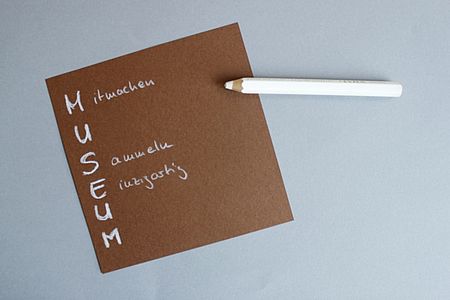 Mitmachen
U
Sammeln
Einzigartig
U
M